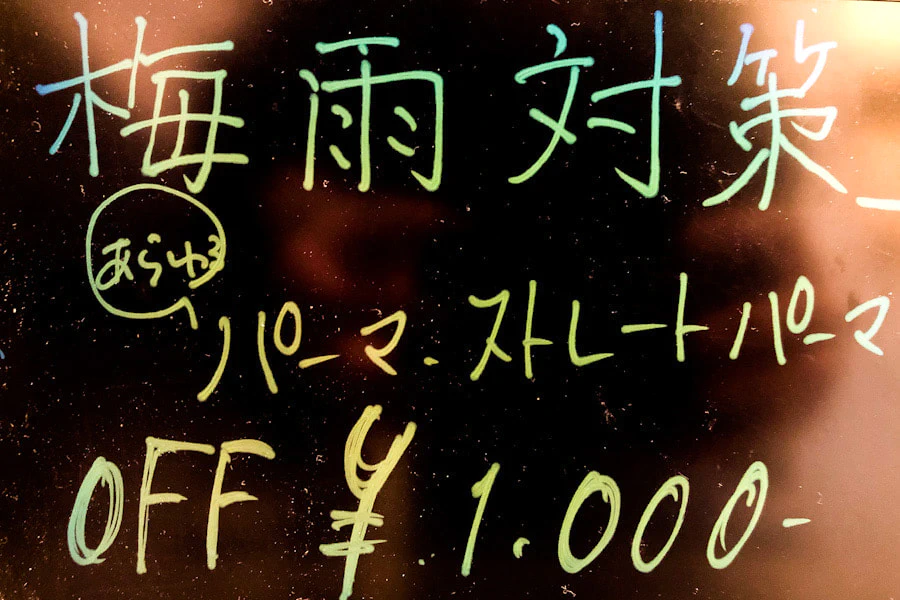 梅雨対策
あらゆる
パーマ．ストレートパーマ
OFF ¥.1.000-